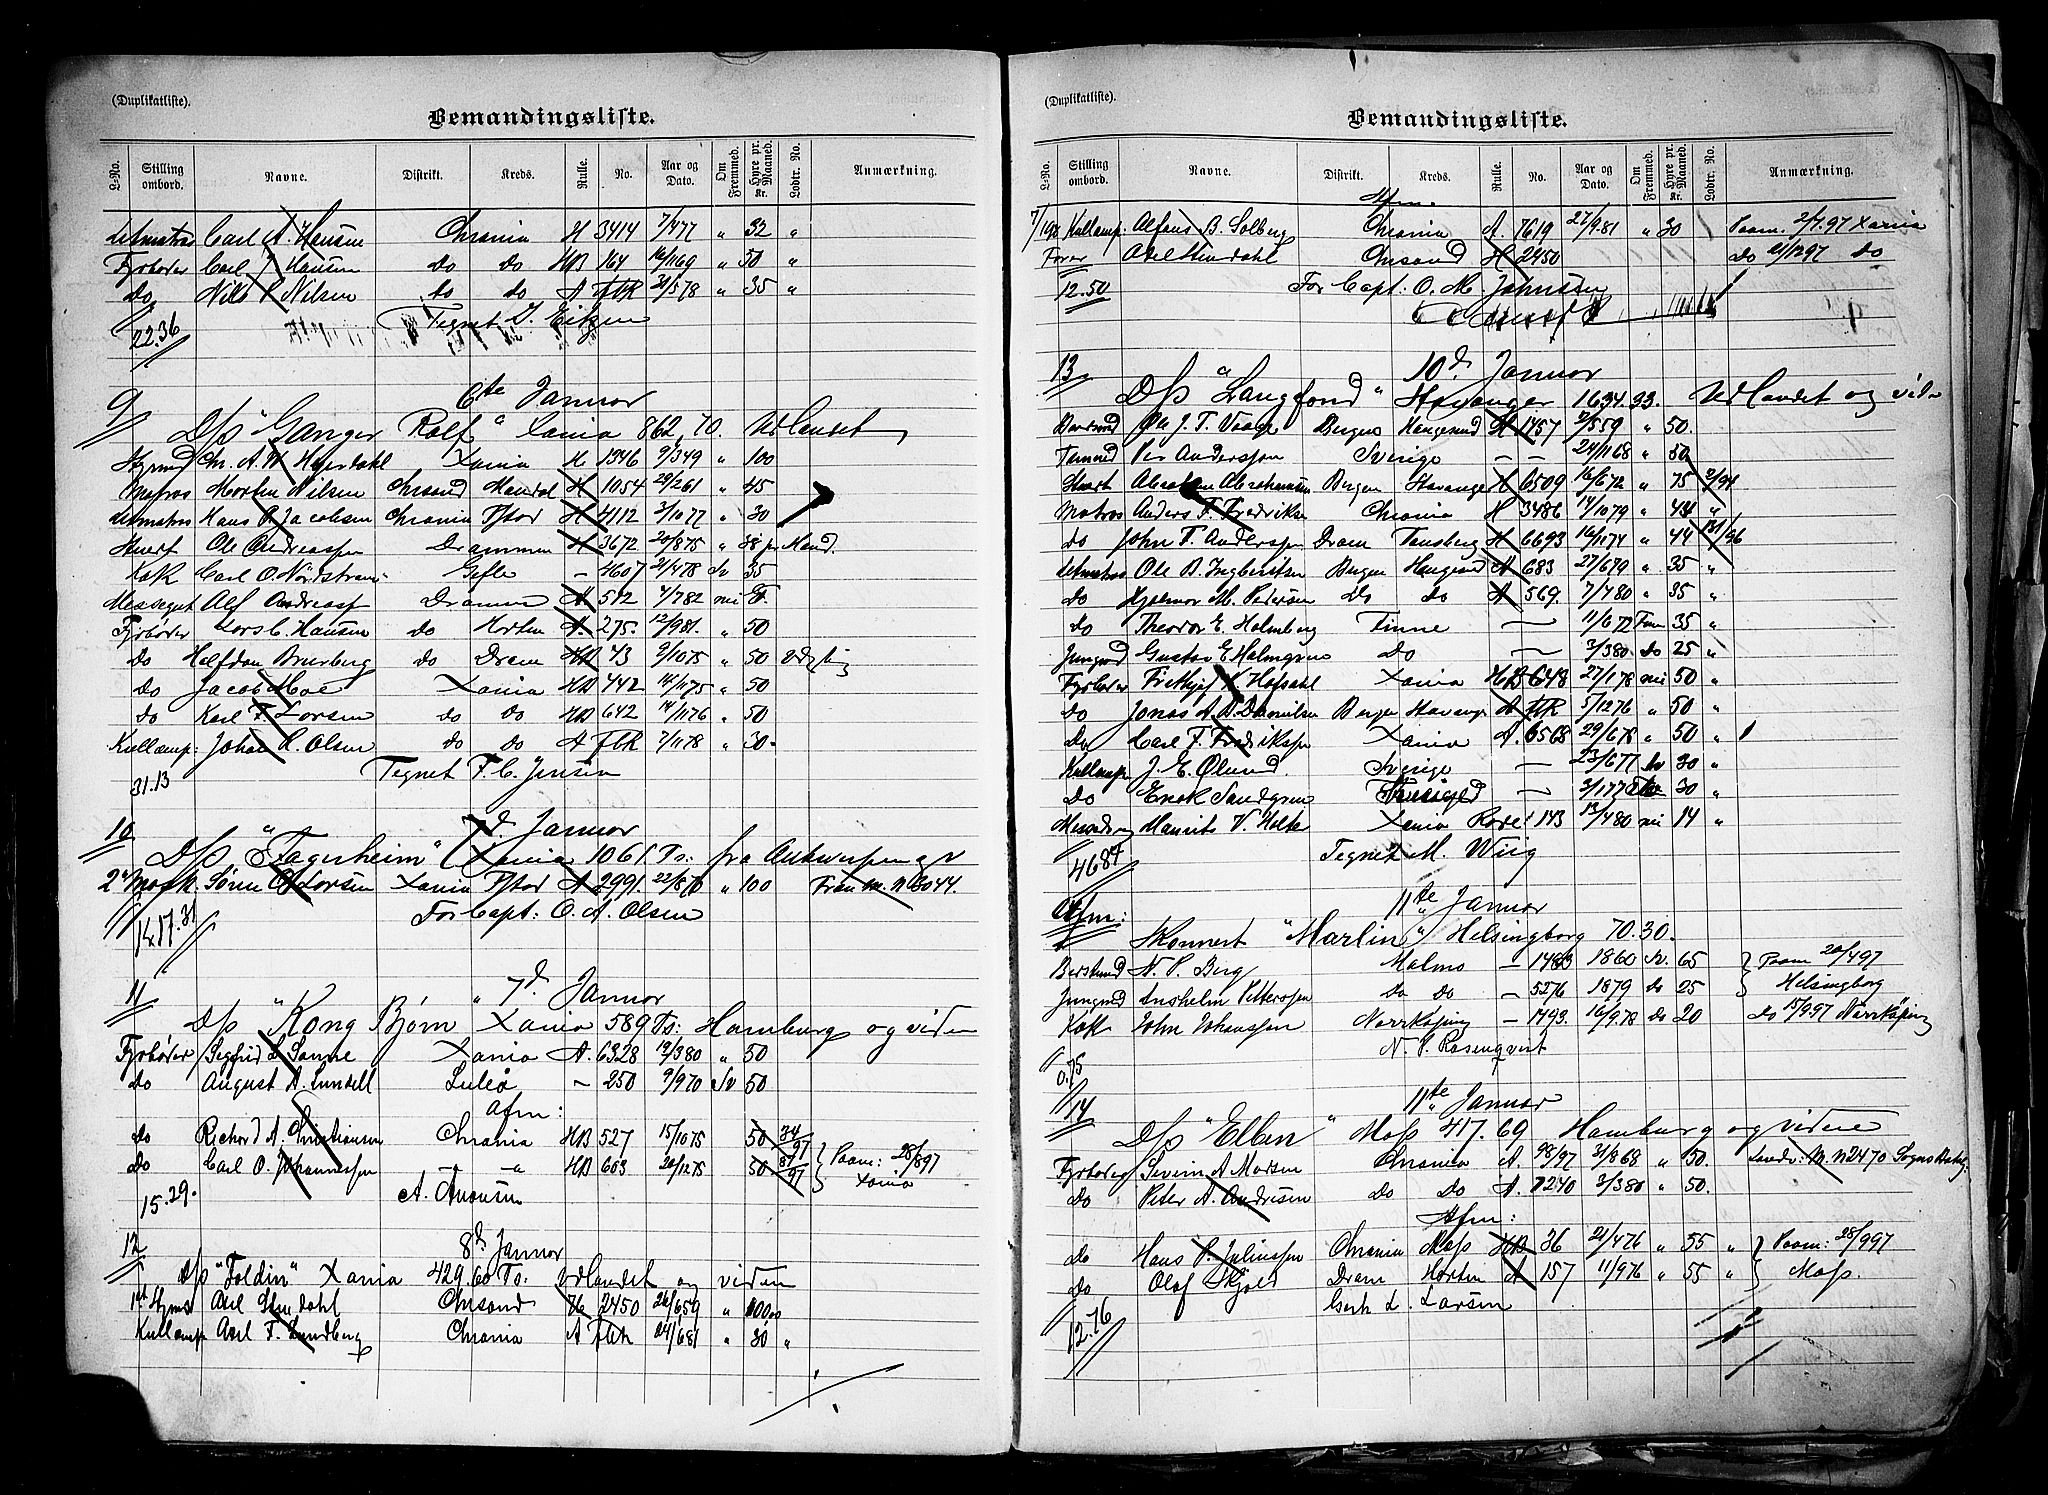 (Duplikatliste).
Bemandingsliste.
L-No. Stilling ombord. Navne. Distrikt. Kreds. Rulle. No. Aar og Dato. Om Fremmed. Hyre pr. Maaned. Kr. Lodtr. No. Anmærkning.
Letmatros Carl A. Hansen Chrania H 3414 7/477 " 32 "
Fyrbøder Carl J Hansen do do HB 164 16/1169 " 50 "
Do Nils P Nilsen do do A Fbk 21/578 " 35 "
22.36 Tegnet J. Eitzen
6te Januar
9 D/s "Ganger Rolf" Xania 862,70. Udlandet
Styrmd Chr. A. W. Heyerdahl Xania H 1346 9/349 " 100
Matros Morten Nilsen Chrsand Mandal H 1054 29/261 " 45
Letmatros Hans R. Jacobsen Chrania Pstad H 4112 3/1077 " 30
Stuert Ole Andreassen Drammen H 3672 20/875 " 38 pr Mand.
Kok Carl O. Nordstrøm Gefle - 4607 21/478 Sv 35
Messegut Alf Andreasen Drammen A 512 4/782 nei F.
Fyrbøder Lars C. Hansen do Horten A. 275. 12/981. " 50
Do Halfdan Bruerberg do Dram HB 43 9/1075 " 50
Do Jacob Moe Xania HB 442 14/1175 " 50
do Karl F. Larsen do do HB 642 14/1176 " 50
Kullemp: Johan R. Olsen do do A Fbk 7/1178 " 30.
31.13 Tegnet F. C. Jensen
10 7d. Januar
D/s "Fagerheim" Xania 1061 Ts: fra Antwerpen
2n Mask. Søren O. Larsen Xania Pstad A 2991. 22/870 " 100 Fram m. N 3044.
14.17.31 For Capt: O. A. Olsen
11 7d Januar
D/s "Kong Bjørn Xania 589 Ts: Hamburg og videre
Fyrbøder Sigfrid L Sanne Xania A. 6328 19/380 " 50
do August A. Lundell Luleå - 250 9/970 Sv 50
Afm:
do Richard A. Christiansen Chrania HB 527 15/1075 50 34/97
Do Carl O. Johannessen - " HB 603 20/1275 50 87/97 Paam: 28/897 Xania
15.29. A. Aronsen
12 8d. Januar
D/s "Foldin" Xania 429.60 Ts. Udlandet og videre
1st Styrmd Axel Stendahl Chrsand H 2450 26/659 " 100,00
Kullemp Axel F. Lundberg Chrania A Fbk 24/681 " 30 "
(Duplikatliste).
Bemandingsliste.
L-No. Stilling ombord. Navne. Distrikt. Kreds. Rulle. No. Aar og Dato. Om Fremmed. Hyre pr. Maaned. Kr. Lodtr. No. Anmærkning.
Afm.
Kullemp: Alfons B. Solberg Chrania A. 7619 27/981 " 30 Paam. 2/7.97 Xania
Forer Axel Stendahl Chrsand H 2450 Do 21/1297 do
12.50 For Capt: O. M. Johnsen
13 10d. Januar
D/s "Langfond" Stavanger 1634.33. Udlandet og vide
Baadsmd Ole J. T. Vaage Bergen Haugesund H 1457 2/559 " 50.
Tømmd Per Andersson Sverige - - 24/1168 " 50
Stuert Abraham Abrahamsen Bergen Stavanger H 6509 16/672 " 75 2/97
Matros Anders F. Fredriksen Chrania H 3486 14/1079 " 44 "
do John T. Anderssen Dram Tønsberg H 6693 16/1174 " 44 131/96
Letmatros Ole B. Ingebrigtsen Bergen Haugesund A 683 27/679 " 35 "
do Hjalmar M. Pedersen do do A 569. 7/480 " 35 "
do Theodor E. Holmberg Finne - 11/672 Finn 35 "
Jungmd Gustav E Holmgren do - 3/380. do 25 "
Fyrbøder Frithjof K Hofsdahl Xania HB 648 27/178 nei 50 "
do Jonas A. B. Danielsen Bergen Stavanger A Fbk 5/1276 " 50 "
do Carl F. Fredrikssen Xania A. 6568 29/678 " 50 "
Kullemp J. E. Ølund. Sverige - 23/677 Sv 30 "
do Enok Sandgren - 3/177 30 "
Messedreng Maurits V. Holte Xania Rode 143 13/480 nei 14 "
46.87 Tegnet M. Wiig
Afm: 11te Januar
Skonnert "Marlin" Helsingborg 70.30.
Bestmd N. P. Berg Malmø - 1483 1860 Sv. 65 Paam 20/497
Jungmd Anshelm Pettersson do do - 5276 1879 do 25 Helsingborg
Kok John Johansson Norrköping - 1493. 16/978 do 20 do 15/997 Norrköping
0.75 N. P. Rosenqvist
14 11te Januar
D/s "Ellen" Moss 417.69 Hamburg og videre
Fyrbøder Severin A Madsen Chrania A. 98/97 31/868 " 50. Landv: M. N 2470 Sogns Batg.
do Peter A. Andresen do do A. 1240 3/380 " 50.
Afm:
do Hans P. Juliussen Chrania Moss HB 36 21/476 " 55 " Paam: 28/997
Do Olaf Skjold Dram Horten A 157 11/976 " 55 " Moss.
12.76 Gerh L. Larsen